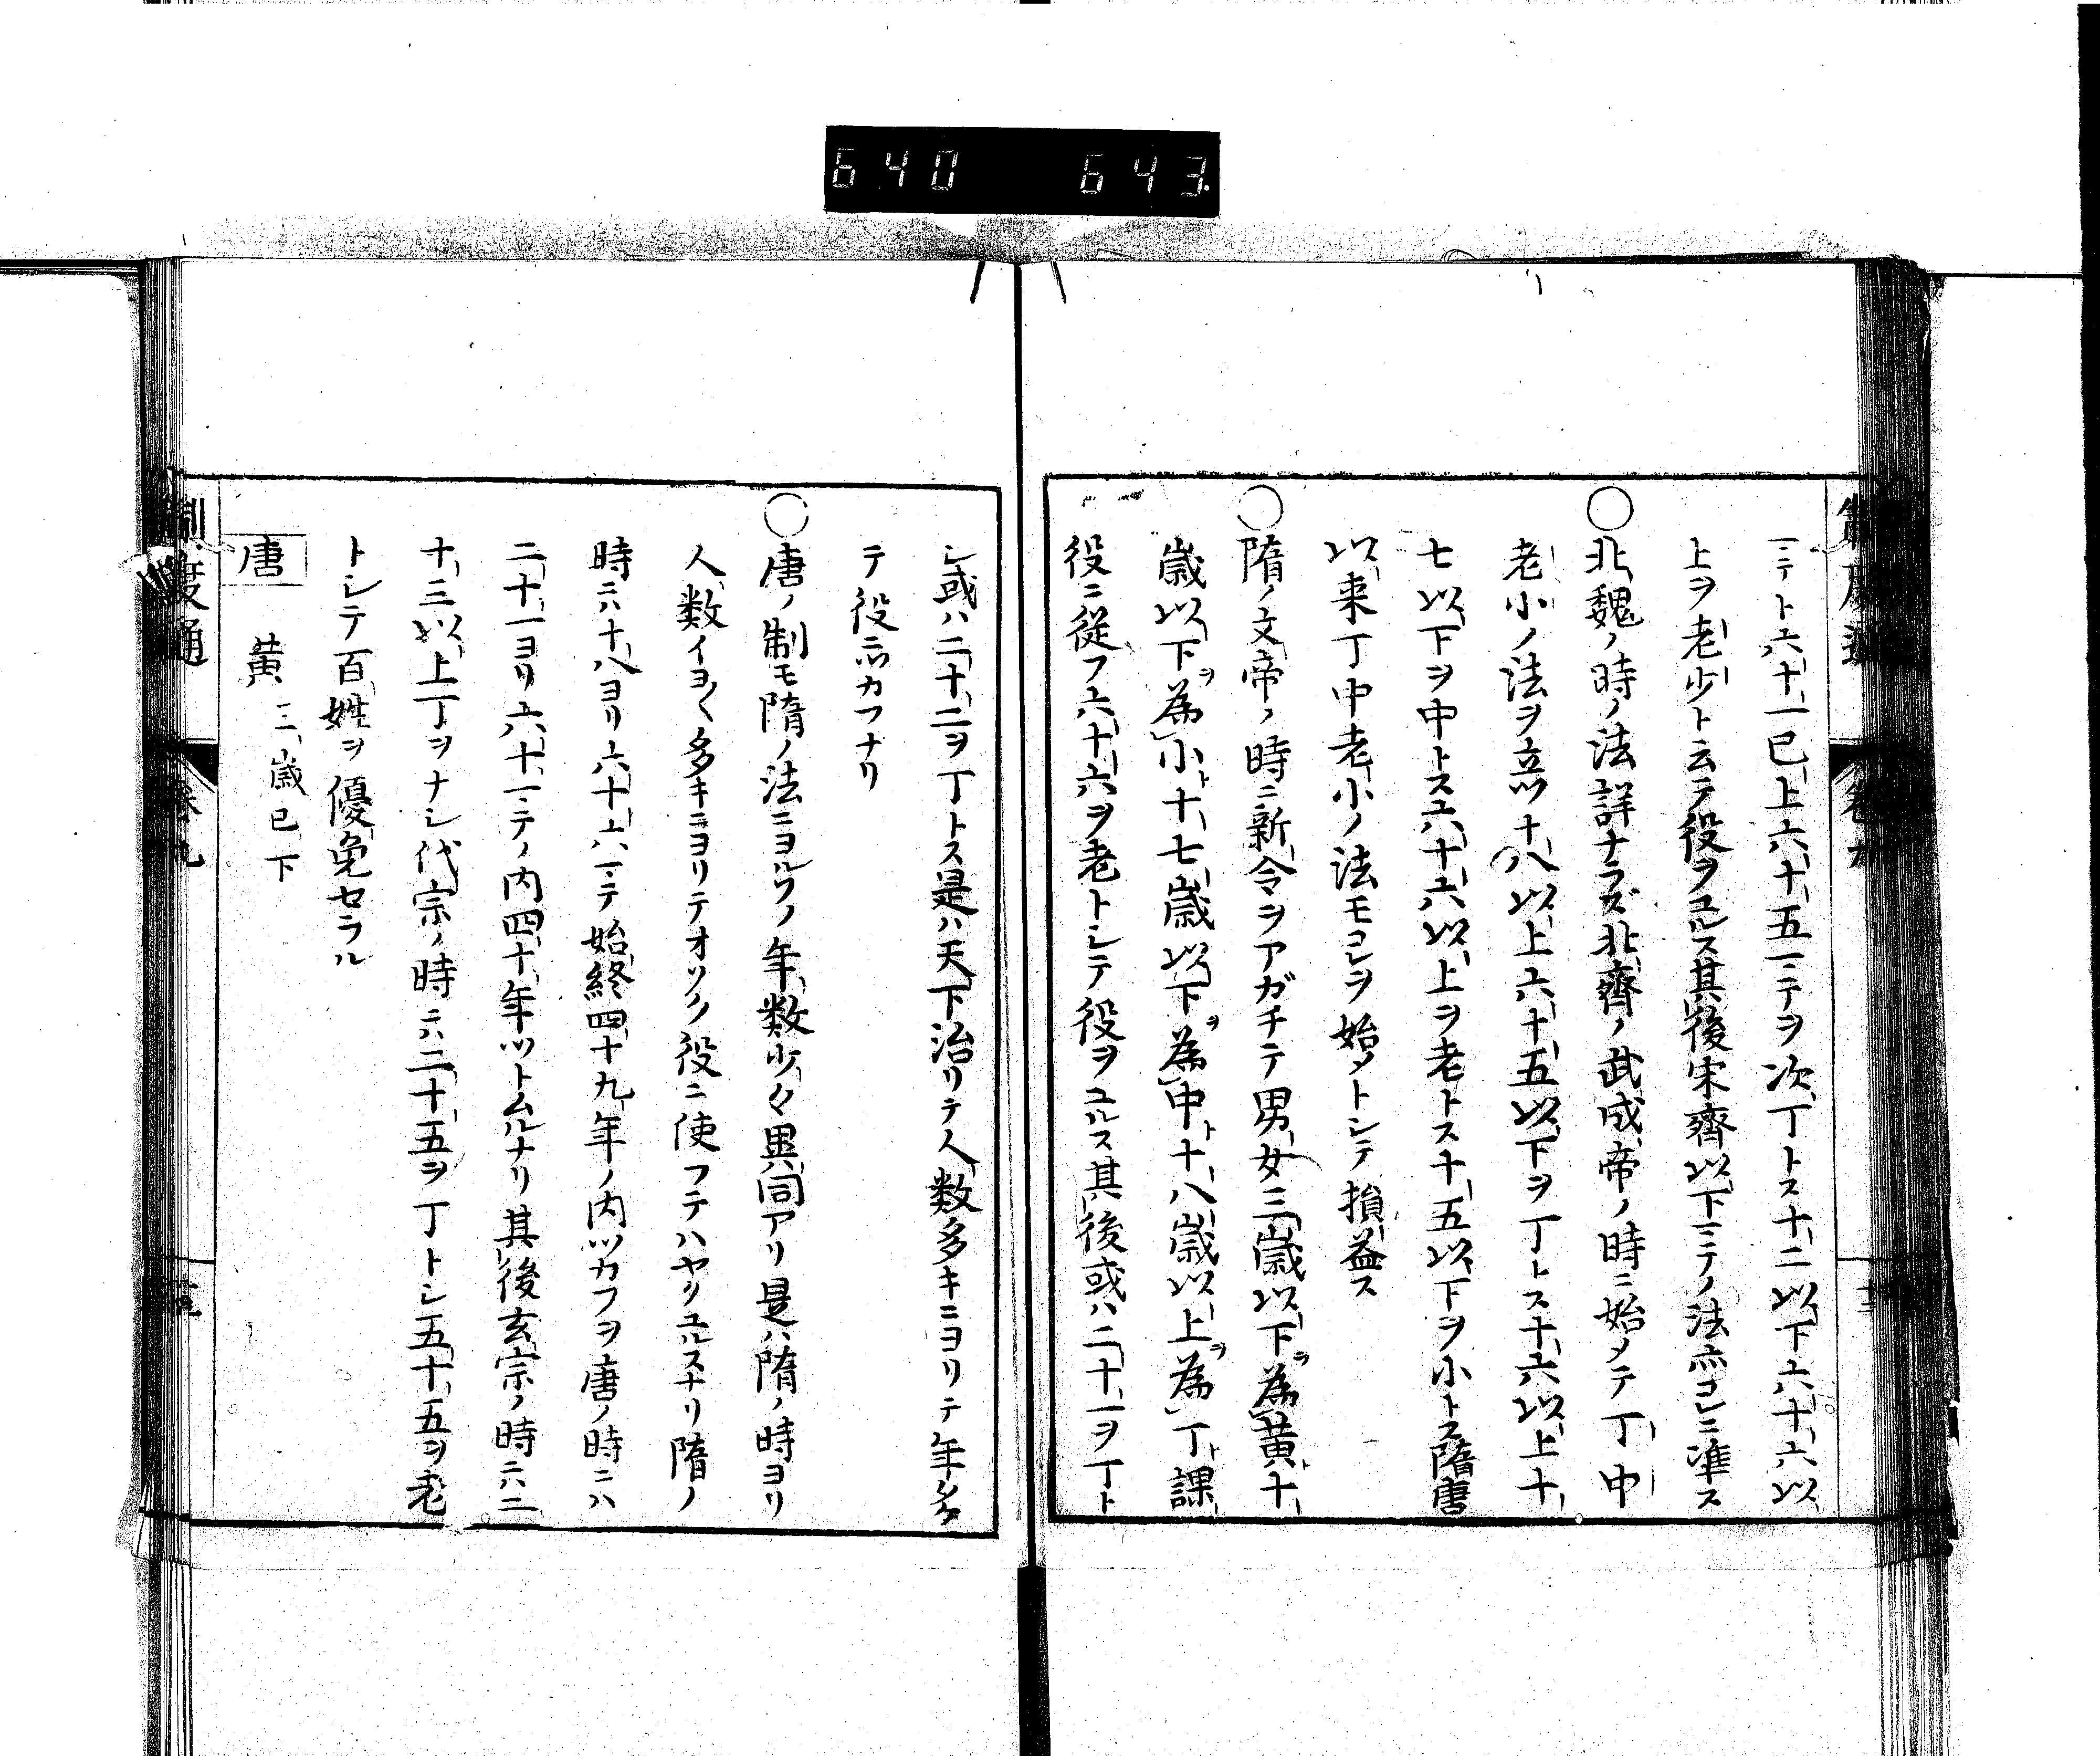 640 643.
マテト六十一已上六十五マテヲ次丁トス十二以下六十六以
上ヲ老少ト云テ役ヲユルス其後宋齊以下マテノ法亦コレニ準ス
○北魏ノ時ノ法詳ナラズ北齊ノ武成帝ノ時ニ始メテ丁中
老小ノ法ヲ立ツ十八以上六十五以下ヲ丁トス十六以上十
七以下ヲ中トス六十六以上ヲ老トス十五以下ヲ小トス隋唐
以来丁中老小ノ法モコレヲ始メトシテ損益ス
○隋ノ文帝ノ時ニ新令ヲアガチテ男女三歳以下ヲ為黄ト十
歳以下ヲ為小ト十七歳以下ヲ為中ト十八歳以上ヲ為丁ト課
役ニ従フ六十六ヲ老トシテ役ヲユルス其後或ハ二十一ヲ丁ト
シ或ハ二十二ヲ丁トス是ハ天下治リテ人数多キニヨリテ年タケ
テ役ニツカフナリ
○唐ノ制モ隋ノ法ニヨルソノ年数少々異同アリ是ハ隋ノ時ヨリ
人数イヨ〱多キニヨリテオソク役ニ使フテハヤクユルスナリ隋ノ
時ニハ十八ヨリ六十六マテ始終四十九年ノ内ツカフヲ唐ノ時ニハ
二十一ヨリ六十一マテノ内四十年ツトムルナリ其後玄宗ノ時ニハ二
十三以上丁ヲナシ代宗ノ時ニハ二十五ヲ丁トシ五十五ヲ老
トシテ百姓ヲ優免セラル
唐 黄 三歳已下
制度通 巻九